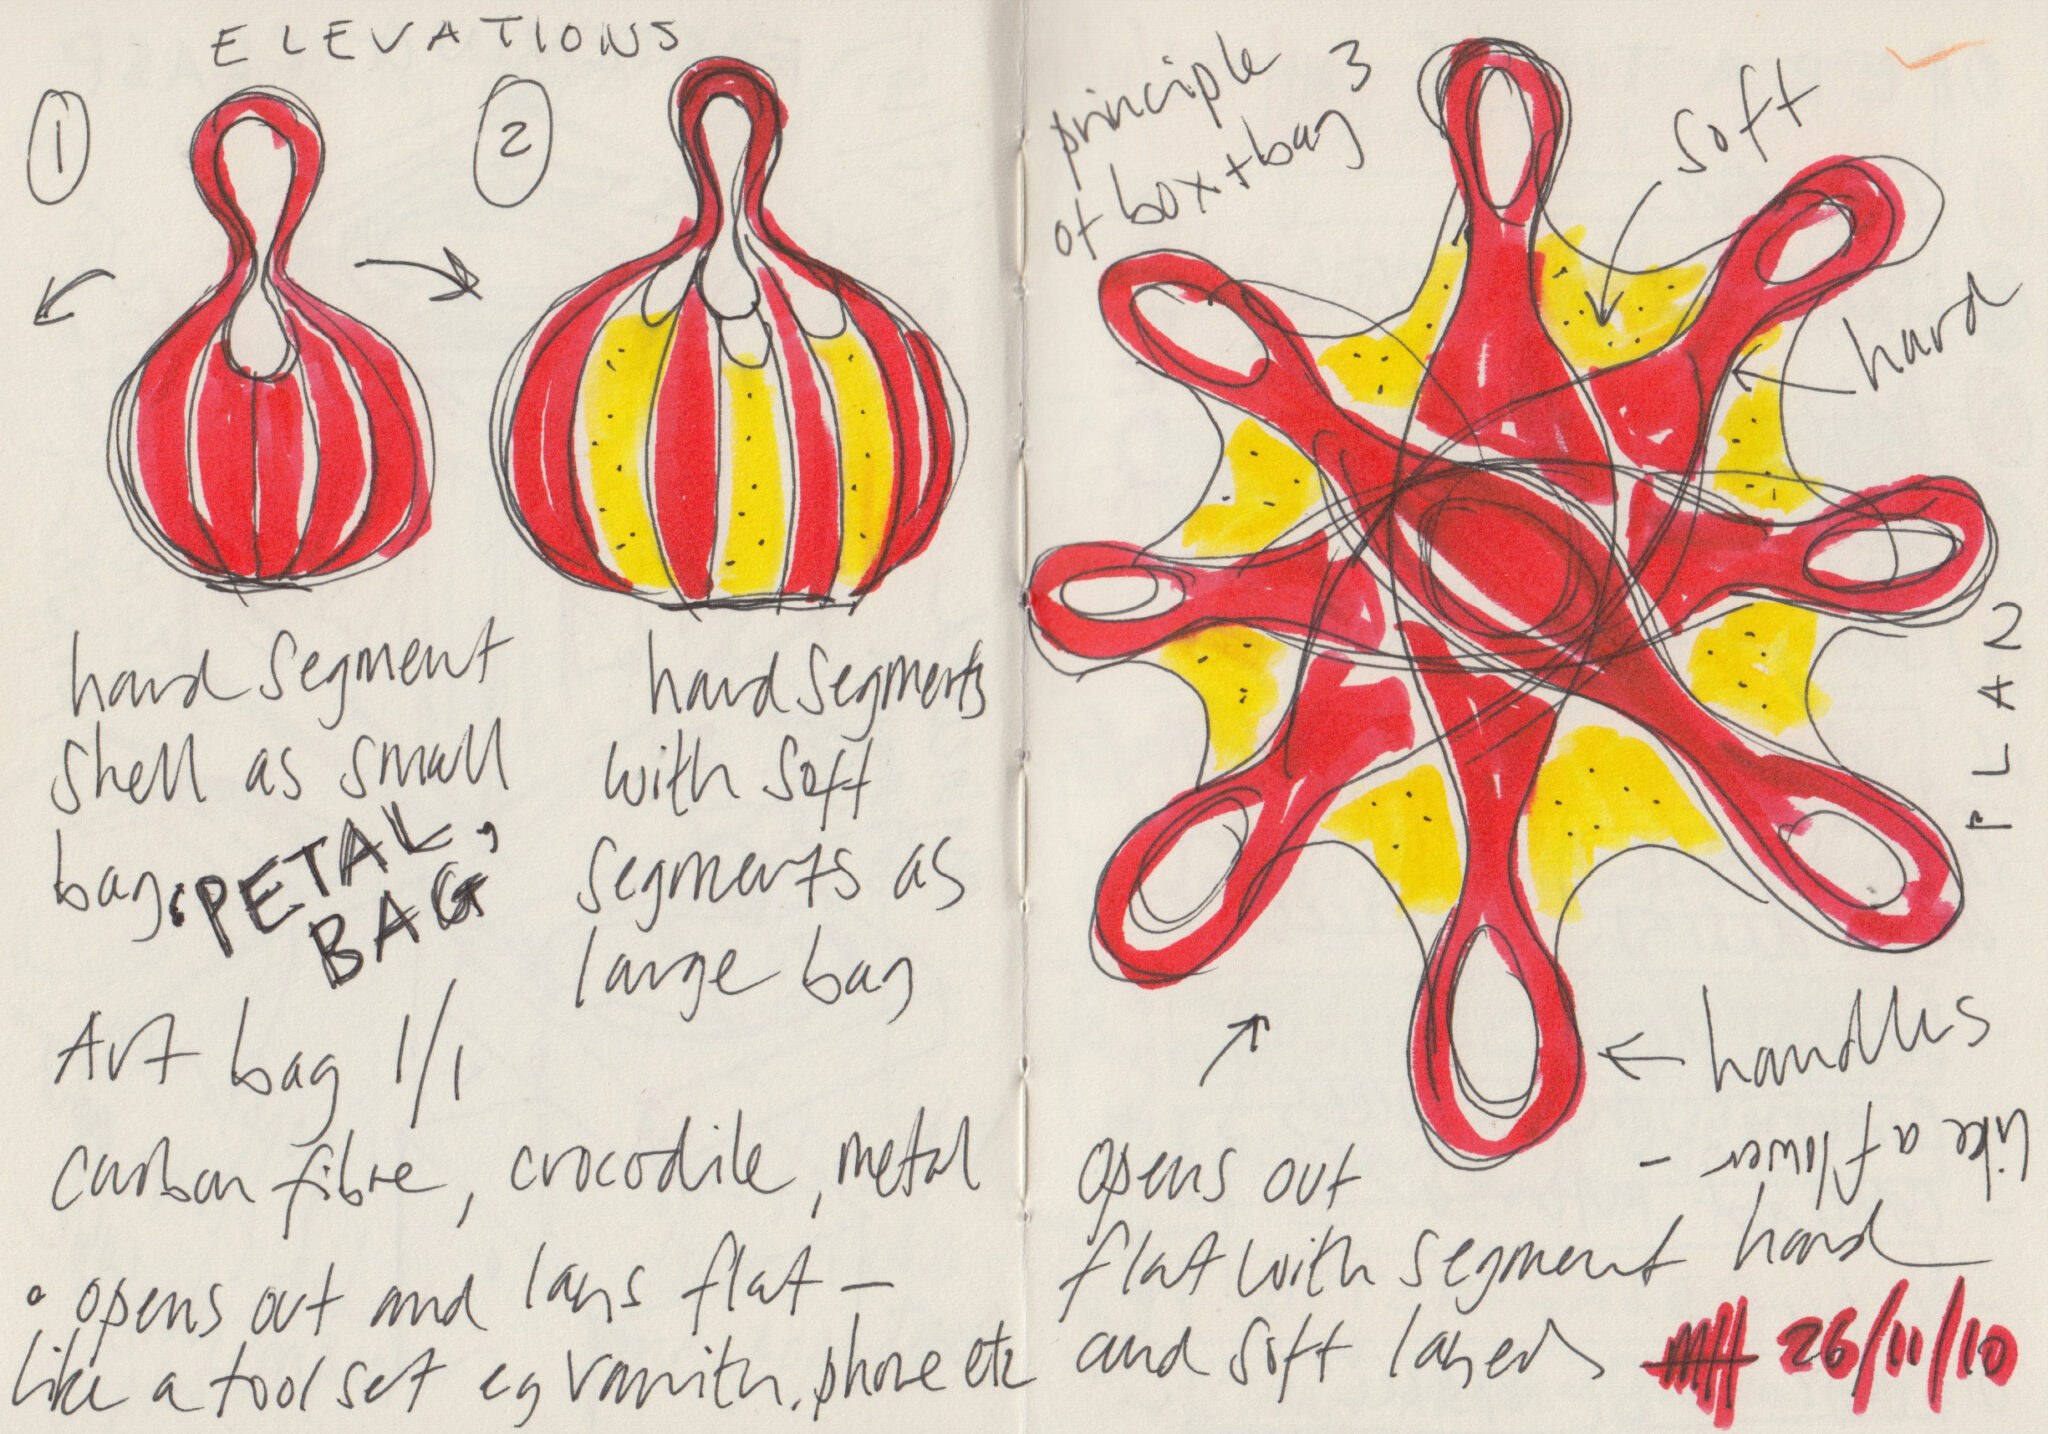 ELEVATIONS
1
2
hard segment
shell as small
bag.
'PETAL
BAG'
hard segments
with soft
segments as
large bag
Art bag 1/1
carbon fibre, crocodile, metal
• opens out and lays flat –
like a tool set eg vanity, phone etc
principle 3
of box + bag
soft
hard
PLAN
handles
like a flower -
opens out
flat with segment hard
and soft layers
MH 26/11/10